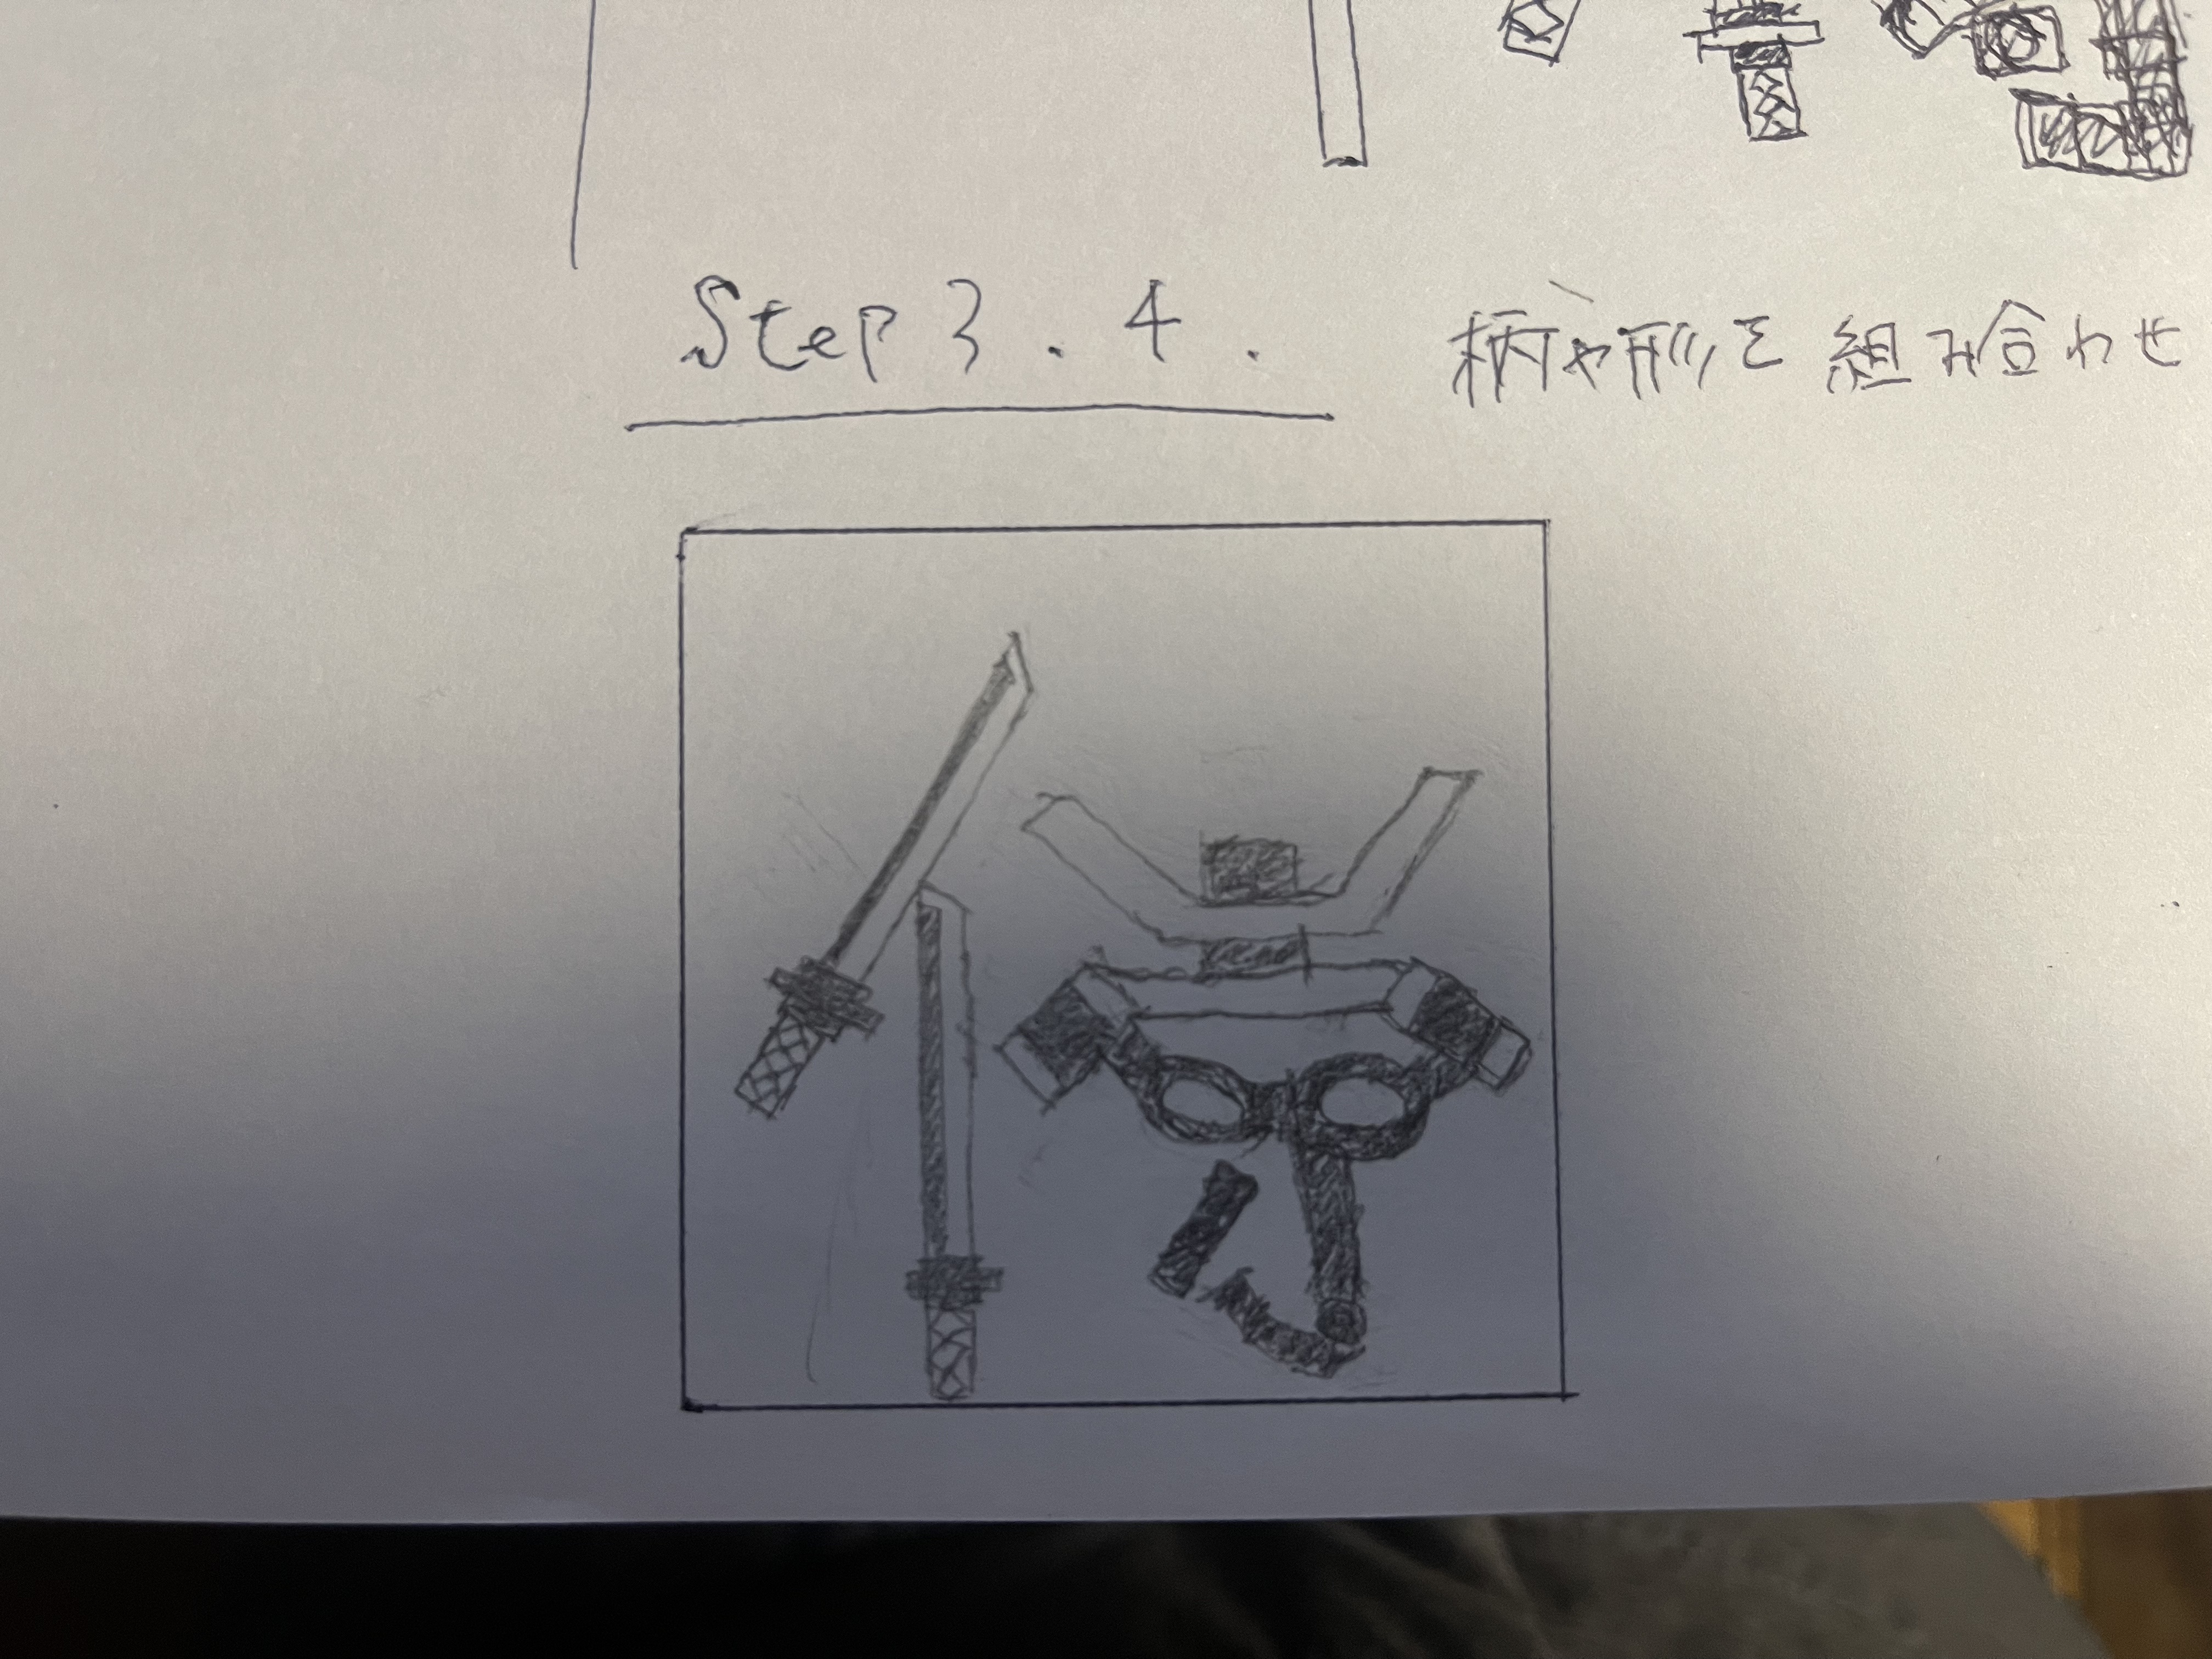 Step 3. 4. 柄や形を組み合わせ